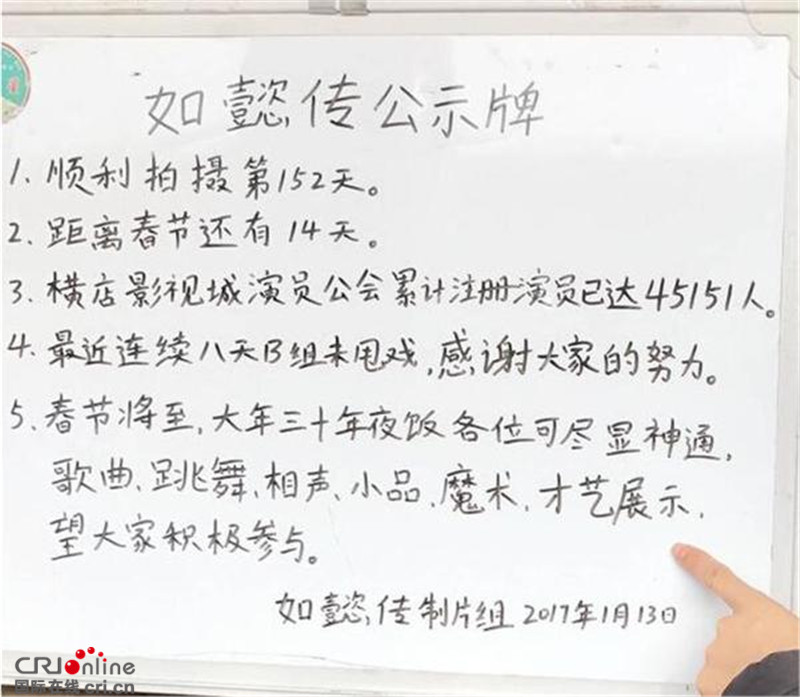 如懿传公示牌
1. 顺利拍摄第152天。
2. 距离春节还有14天。
3. 横店影视城演员公会累计注册演员已达45151人。
4. 最近连续八天B组未甩戏,感谢大家的努力。
5. 春节将至,大年三十年夜饭各位可尽显神通,
歌曲、跳舞、相声、小品、魔术、才艺展示,
望大家积极参与。
如懿传制片组 2017年1月13日
CRIonline
国际在线cri.cn